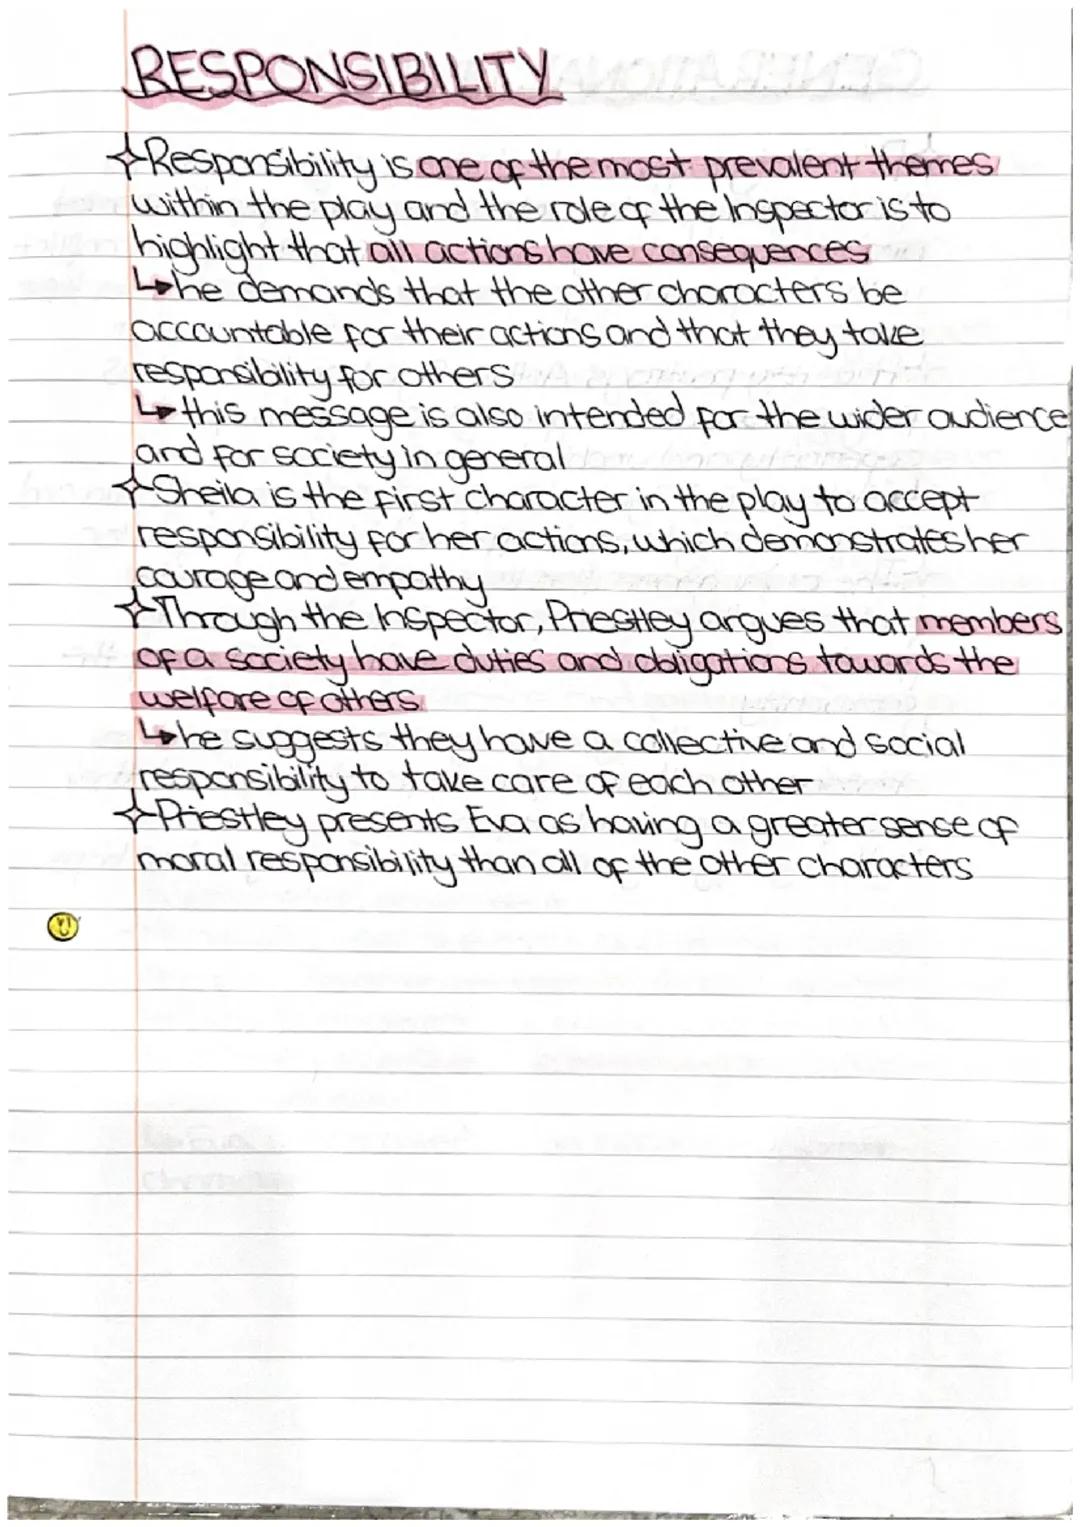 RESPONSIBILITY
Responsibility is one of the most prevalent themes
within the play and the role of the Inspector is to
highlight that all actions have consequences
↳he demands that the other characters be
accountable for their actions and that they take
responsibility for others
↳this message is also intended for the wider audience
and for society in general
Sheila is the first character in the play to accept
responsibility for her actions, which demonstrates her
courage and empathy
Through the Inspector, Priestley argues that members
of a society have duties and obligations towards the
welfare of others.
↳he suggests they have a collective and social
responsibility to take care of each other
Priestley presents Eva as having a greater sense of
moral responsibility than all of the other characters